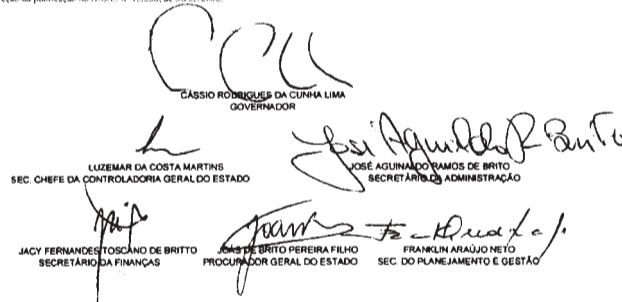 CÁSSIO RODRIGUES DA CUNHA LIMA
GOVERNADOR
José Aguinaldo R Brito
LUZEMAR DA COSTA MARTINS
SEC. CHEFE DA CONTROLADORIA GERAL DO ESTADO
JOSÉ AGUINALDO RAMOS DE BRITO
SECRETÁRIO DA ADMINISTRAÇÃO
JACY FERNANDES TOSCANO DE BRITTO
SECRETÁRIO DA FINANÇAS
JOÁS DE BRITO PEREIRA FILHO
PROCURADOR GERAL DO ESTADO
FRANKLIN ARAÚJO NETO
SEC. DO PLANEJAMENTO E GESTÃO